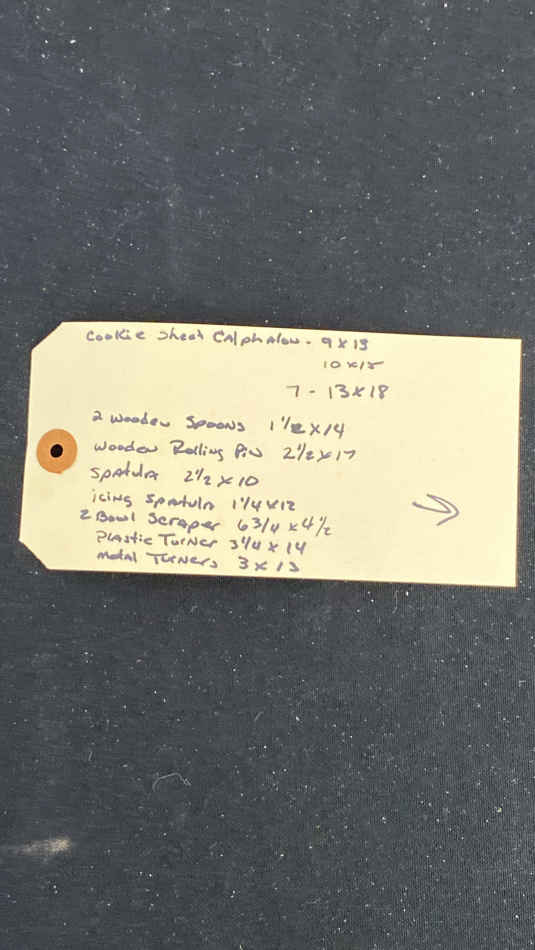 Cookie Sheet Calphalon - 9 x 13
10 x 15
7 - 13 x 18
2 wooden Spoons 1 1/2 x 14
wooden Rolling Pin 2 1/2 x 17
Spatula 2 1/2 x 10
icing Spatula 1 1/4 x 12
2 Bowl Scraper 6 3/4 x 4 1/2
Plastic Turner 3 1/4 x 14
metal Turners 3 x 13